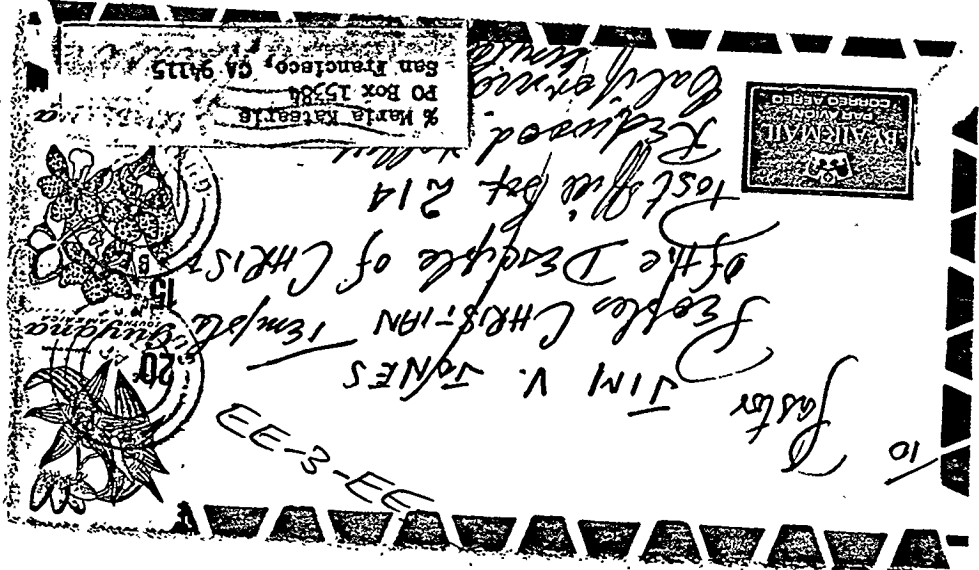 TO
Pastor
JIM V. JONES
Peoples CHRISTIAN Temple
of the Desciple of CHRIST
Post Office Box 214
Redwood Valley
California
% Maria Katsaris
PO Box 15384
San Francisco, CA 94115
BY AIRMAIL
PAR AVION
CORREO AEREO
15
Guyana
20
EE-3-EE